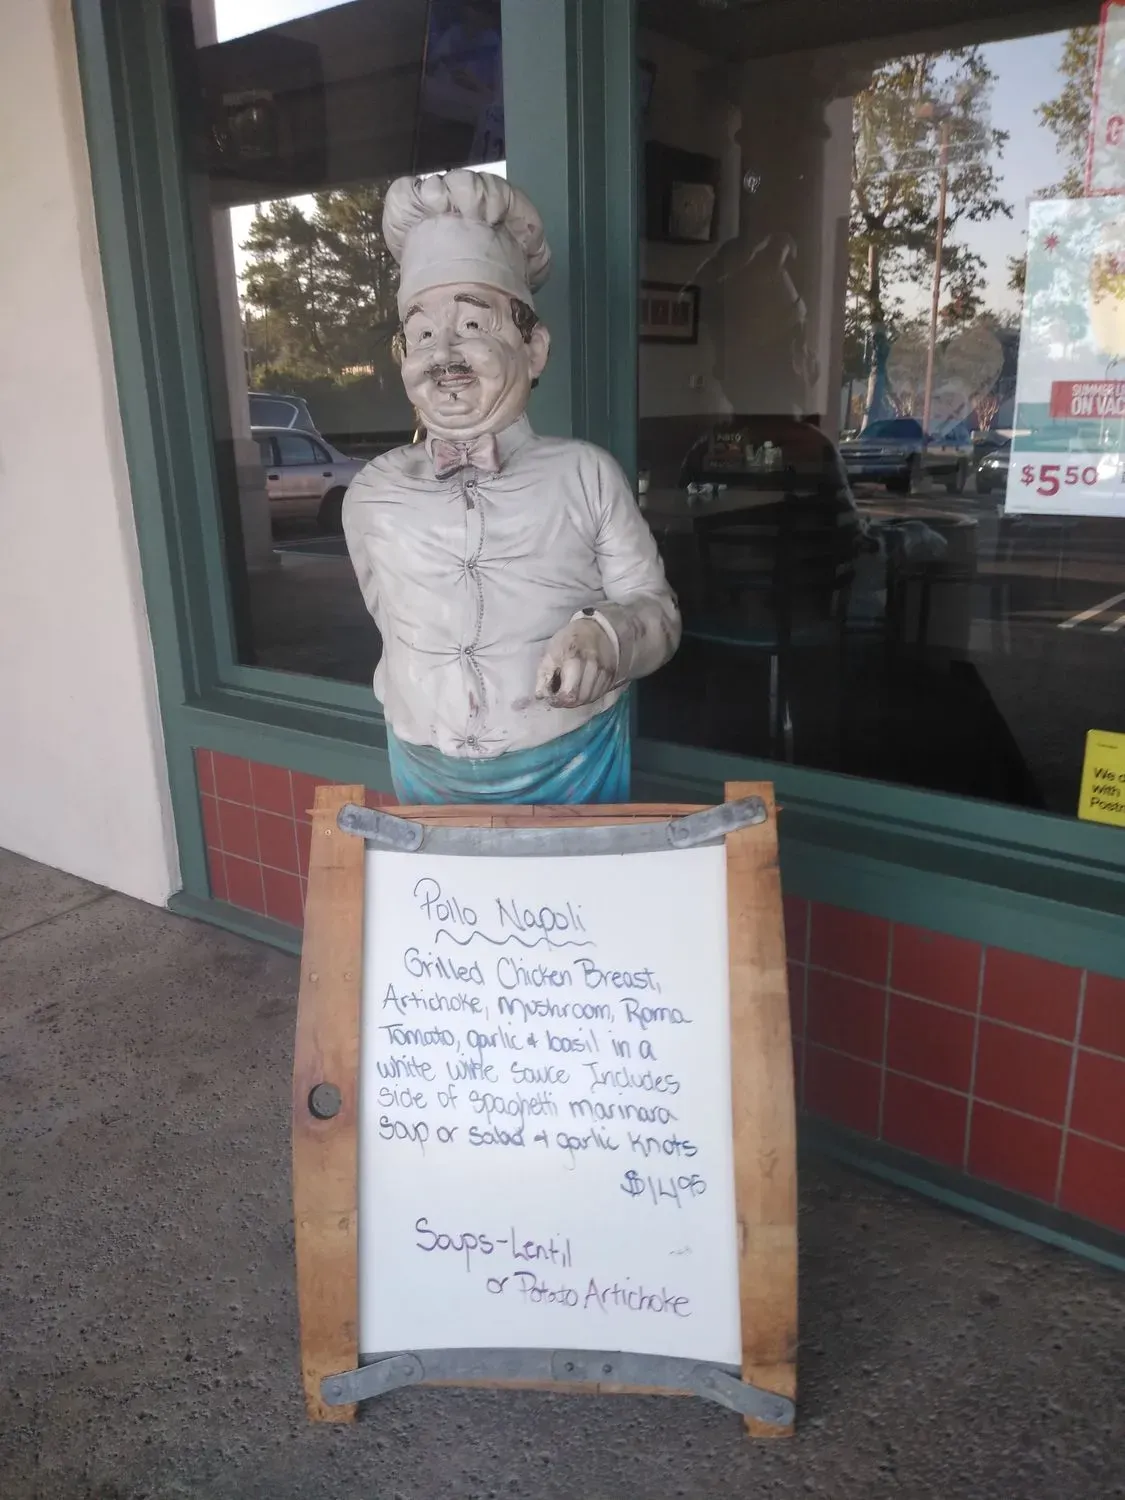 Pollo Napoli
Grilled Chicken Breast,
Artichoke, Mushroom, Roma
Tomato, garlic & basil in a
white wine Sauce Includes
side of spaghetti marinara
Soup or Salad & garlic knots
$14.95
Soups-Lentil
or Potato Artichoke
ON VAC
$5.50
We d
with
Postm